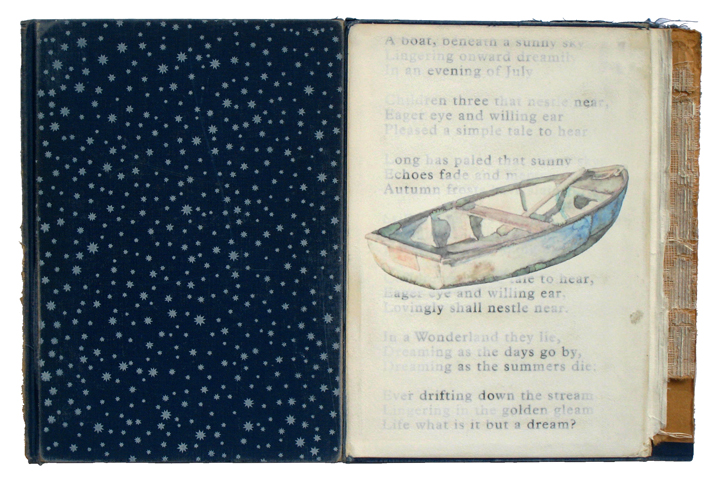 A boat, beneath a sunny sky
Lingering onward dreamily
In an evening of July
Children three that nestle near,
Eager eye and willing ear
Pleased a simple tale to hear
Long has paled that sunny
Echoes fade and
Autumn frosts
tale to hear,
Eager eye and willing ear,
Lovingly shall nestle near.
In a Wonderland they lie,
Dreaming as the days go by,
Dreaming as the summers die:
Ever drifting down the stream
Lingering in the golden gleam
Life what is it but a dream?